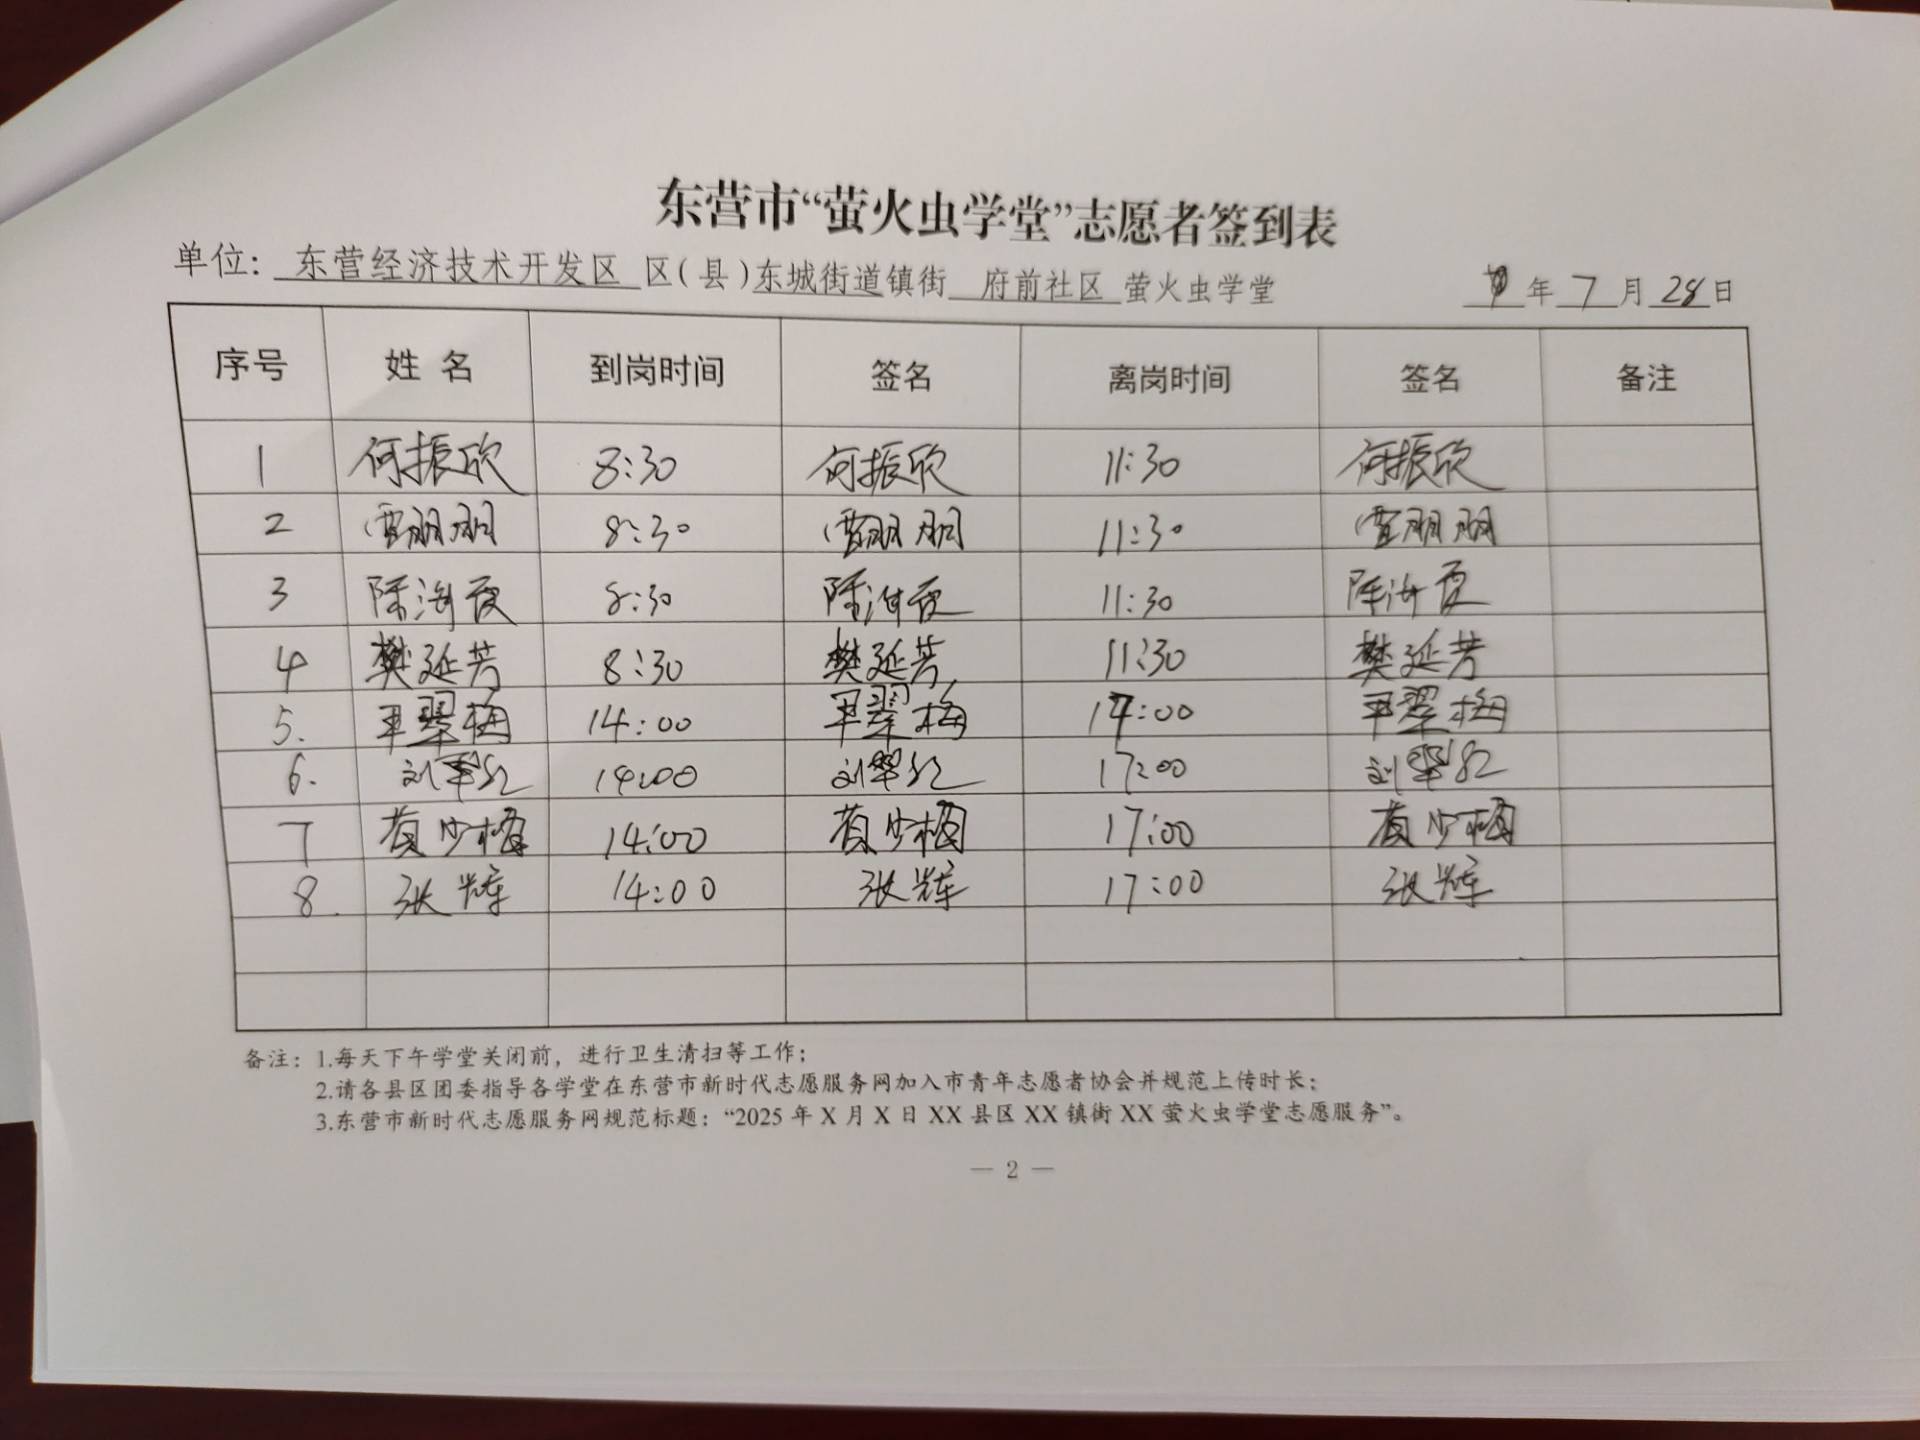 东营市“萤火虫学堂”志愿者签到表
单位: 东营经济技术开发区 区(县)东城街道镇街 府前社区 萤火虫学堂 年 7 月 28 日
序号 姓 名 到岗时间 签名 离岗时间 签名 备注
1 何振欣 8:30 何振欣 11:30 何振欣
2 朋朋 8:30 朋朋 11:30 朋朋
3 陈海霞 8:30 陈海霞 11:30 陈海霞
4 樊延芳 8:30 樊延芳 11:30 樊延芳
5. 翠梅 14:00 翠梅 17:00 翠梅
6. 刘翠红 14:00 刘翠红 17:00 刘翠红
7 黄少梅 14:00 黄少梅 17:00 黄少梅
8. 张辉 14:00 张辉 17:00 张辉
备注: 1.每天下午学堂关闭前，进行卫生清扫等工作;
2.请各县区团委指导各学堂在东营市新时代志愿服务网加入市青年志愿者协会并规范上传时长;
3.东营市新时代志愿服务网规范标题: “2025 年 X 月 X 日 XX 县区 XX 镇街 XX 萤火虫学堂志愿服务”。
— 2 —